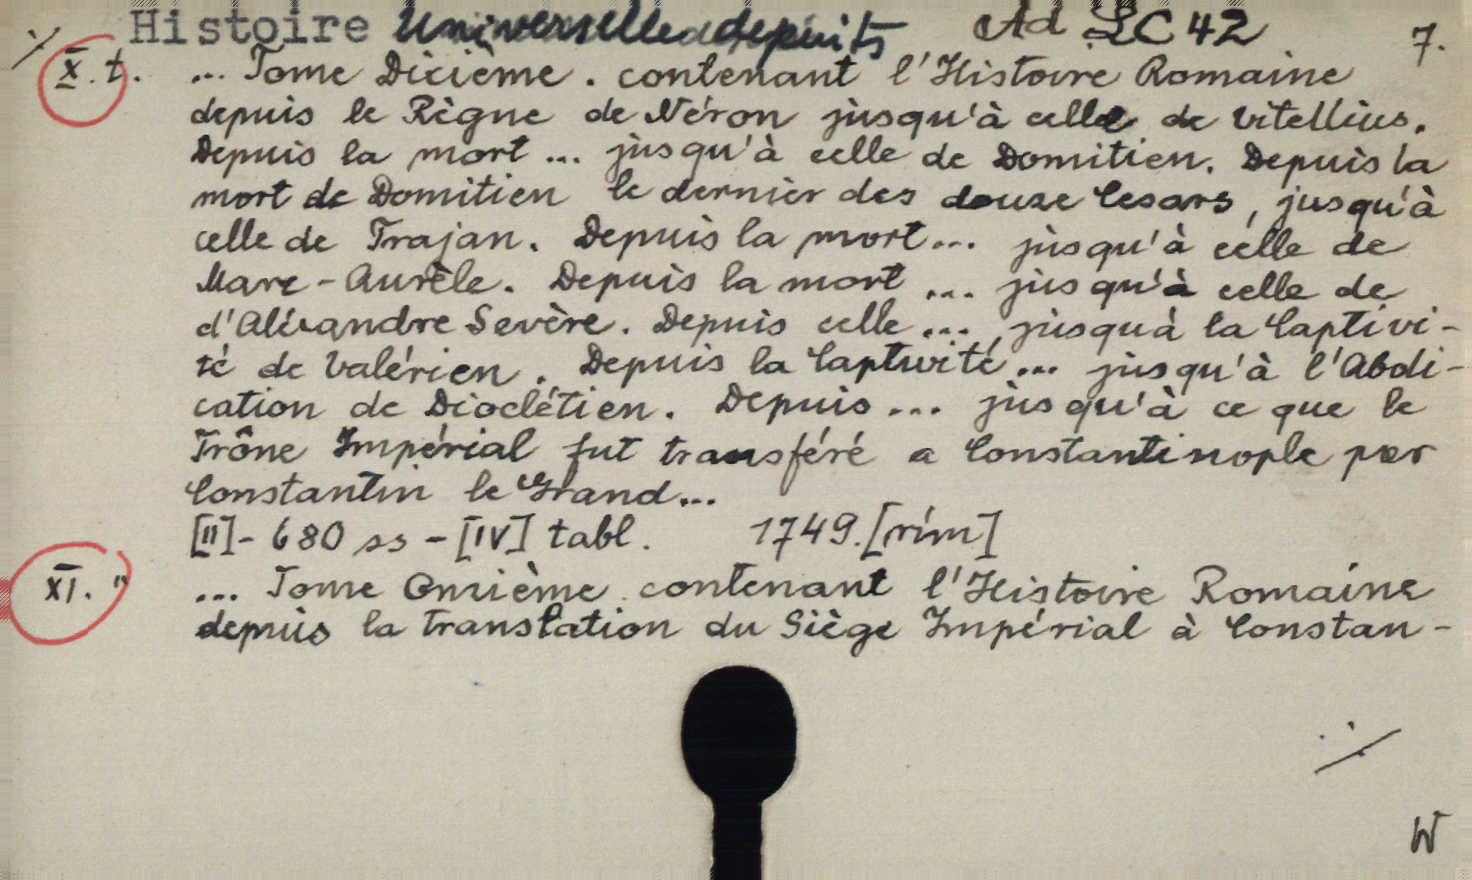 ·/· Histoire Universelle depuis Ad LC 42 7.
X. t. ... Tome Dicieme. contenant l'Histoire Romaine
depuis le Règne de Néron jusqu'à celle de Vitellius.
Depuis la mort ... jusqu'à celle de Domitien. Depuis la
mort de Domitien le dernier des douze Cesars, jusqu'à
celle de Trajan. Depuis la mort... jusqu'à celle de
Marc-Aurèle. Depuis la mort ... jusqu'à celle de
d'Alexandre Sevère. Depuis celle ... jusquà la Captivi-
té de Valérien. Depuis la Captivité ... jusqu'à l'Abdi-
cation de Dioclétien. Depuis ... jusqu'à ce que le
Trône Impérial fut transféré a Constantinople par
Constantin le Grand...
[II]- 680 ss - [IV] tabl. 1749. [rím]
XI. " ... Tome Onzième contenant l'Histoire Romaine
depuis la Translation du Siège Impérial à Constan-
·/·
W